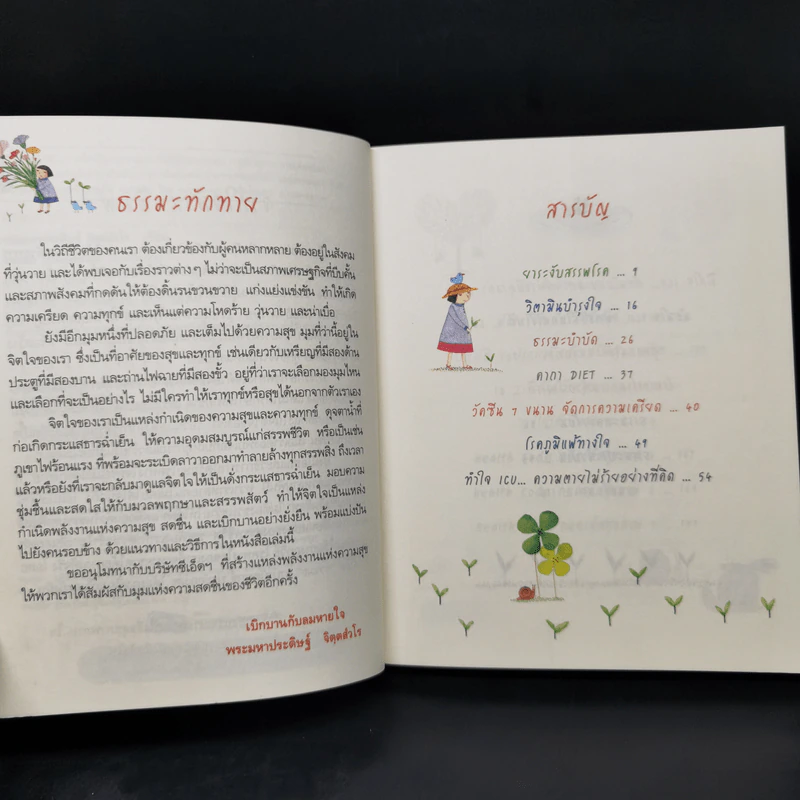 ธรรมะทักทาย
ในวิถีชีวิตของคนเรา ต้องเกี่ยวข้องกับผู้คนหลากหลาย ต้องอยู่ในสังคม
ที่วุ่นวาย และได้พบเจอกับเรื่องราวต่างๆ ไม่ว่าจะเป็นสภาพเศรษฐกิจที่บีบคั้น
และสภาพสังคมที่กดดันให้ต้องดิ้นรนขวนขวาย แก่งแย่งแข่งขัน ทำให้เกิด
ความเครียด ความทุกข์ และเห็นแต่ความโหดร้าย วุ่นวาย และน่าเบื่อ
ยังมีอีกมุมหนึ่งที่ปลอดภัย และเต็มไปด้วยความสุข มุมที่ว่านี้อยู่ใน
จิตใจของเรา ซึ่งเป็นที่อาศัยของสุขและทุกข์ เช่นเดียวกับเหรียญที่มีสองด้าน
ประตูที่มีสองบาน และถ่านไฟฉายที่มีสองขั้ว อยู่ที่ว่าเราจะเลือกมองมุมไหน
และเลือกที่จะเป็นอย่างไร ไม่มีใครทำให้เราทุกข์หรือสุขได้นอกจากตัวเราเอง
จิตใจของเราเป็นแหล่งกำเนิดของความสุขและความทุกข์ ดุจตาน้ำที่
ก่อเกิดกระแสธารฉ่ำเย็น ให้ความอุดมสมบูรณ์แก่สรรพชีวิต หรือเป็นเช่น
ภูเขาไฟร้อนแรง ที่พร้อมจะระเบิดลาวาออกมาทำลายล้างทุกสรรพสิ่ง ถึงเวลา
แล้วหรือยังที่เราจะกลับมาดูแลจิตใจให้เป็นดั่งกระแสธารฉ่ำเย็น มอบความ
ชุ่มชื้นและสดใสให้กับมวลพฤกษาและสรรพสัตว์ ทำให้จิตใจเป็นแหล่ง
กำเนิดพลังงานแห่งความสุข สดชื่น และเบิกบานอย่างยั่งยืน พร้อมแบ่งปัน
ไปยังคนรอบข้าง ด้วยแนวทางและวิธีการในหนังสือเล่มนี้
ขออนุโมทนากับบริษัทซีเอ็ดฯ ที่สร้างแหล่งพลังงานแห่งความสุข
ให้พวกเราได้สัมผัสกับมุมแห่งความสดชื่นของชีวิตอีกครั้ง
เบิกบานกับลมหายใจ
พระมหาประดิษฐ์ จิตฺตสํวโร
สารบัญ
ยาระงับสรรพโรค ... 9
วิตามินบำรุงใจ ... 16
ธรรมะบำบัด ... 26
คาถา DIET ... 37
วัคซีน 7 ขนาน จัดการความเครียด ... 40
โรคภูมิแพ้ทางใจ ... 49
ทำใจ ICU... ความตายไม่ร้ายอย่างที่คิด ... 54